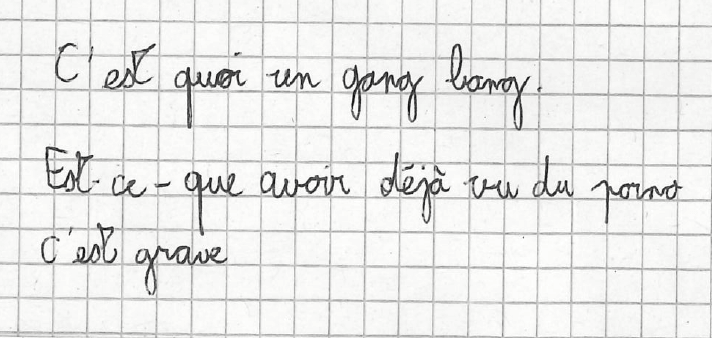 C'est quoi un gang bang.
Est-ce-que avoir déjà vu du porno
c'est grave